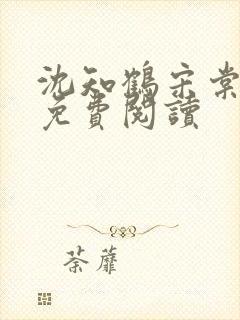 沈知鶴宗棠
免費閱讀
荼蘼